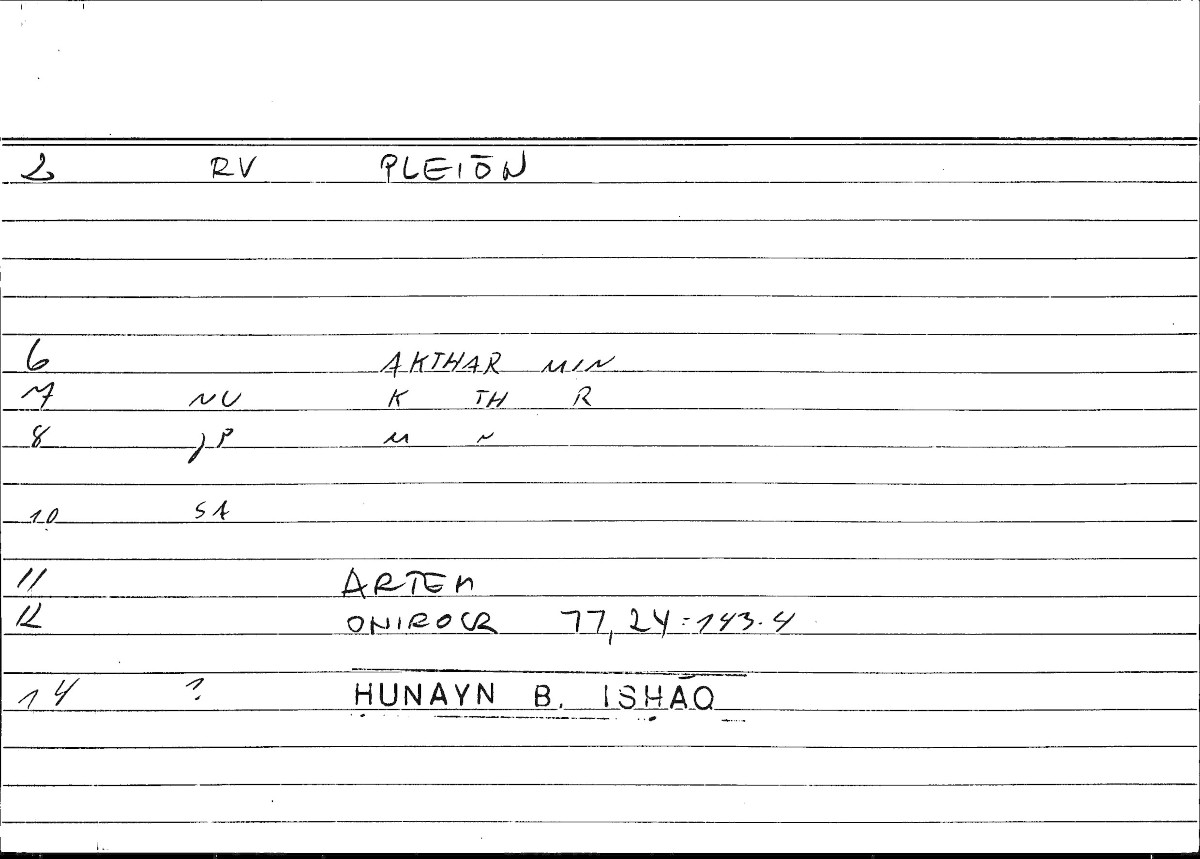 2 RV PLEIŌN
6 AKTHAR MIN
7 NU K TH R
8 JP M N
10 SA
11 ARTEM
12 ONIROCR 77, 24 = 143.4
14 ? ḤUNAYN B. ISḤĀQ